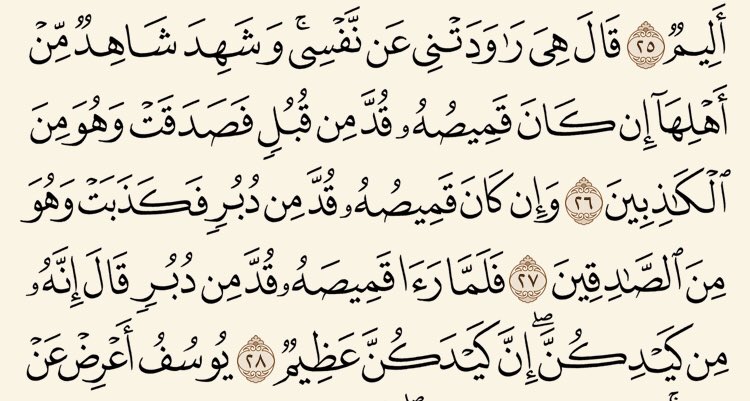 أَلِيمٌ ٢٥ قَالَ هِيَ رَٰوَدَتْنِى عَن نَّفْسِى ۚ وَشَهِدَ شَاهِدٌ مِّنْ
أَهْلِهَآ إِن كَانَ قَمِيصُهُۥ قُدَّ مِن قُبُلٍ فَصَدَقَتْ وَهُوَ مِنَ
ٱلْكَٰذِبِينَ ٢٦ وَإِن كَانَ قَمِيصُهُۥ قُدَّ مِن دُبُرٍ فَكَذَبَتْ وَهُوَ
مِنَ ٱلصَّٰدِقِينَ ٢٧ فَلَمَّا رَءَا قَمِيصَهُۥ قُدَّ مِن دُبُرٍ قَالَ إِنَّهُۥ
مِن كَيْدِكُنَّ ۖ إِنَّ كَيْدَكُنَّ عَظِيمٌ ٢٨ يُوسُفُ أَعْرِضْ عَنْ